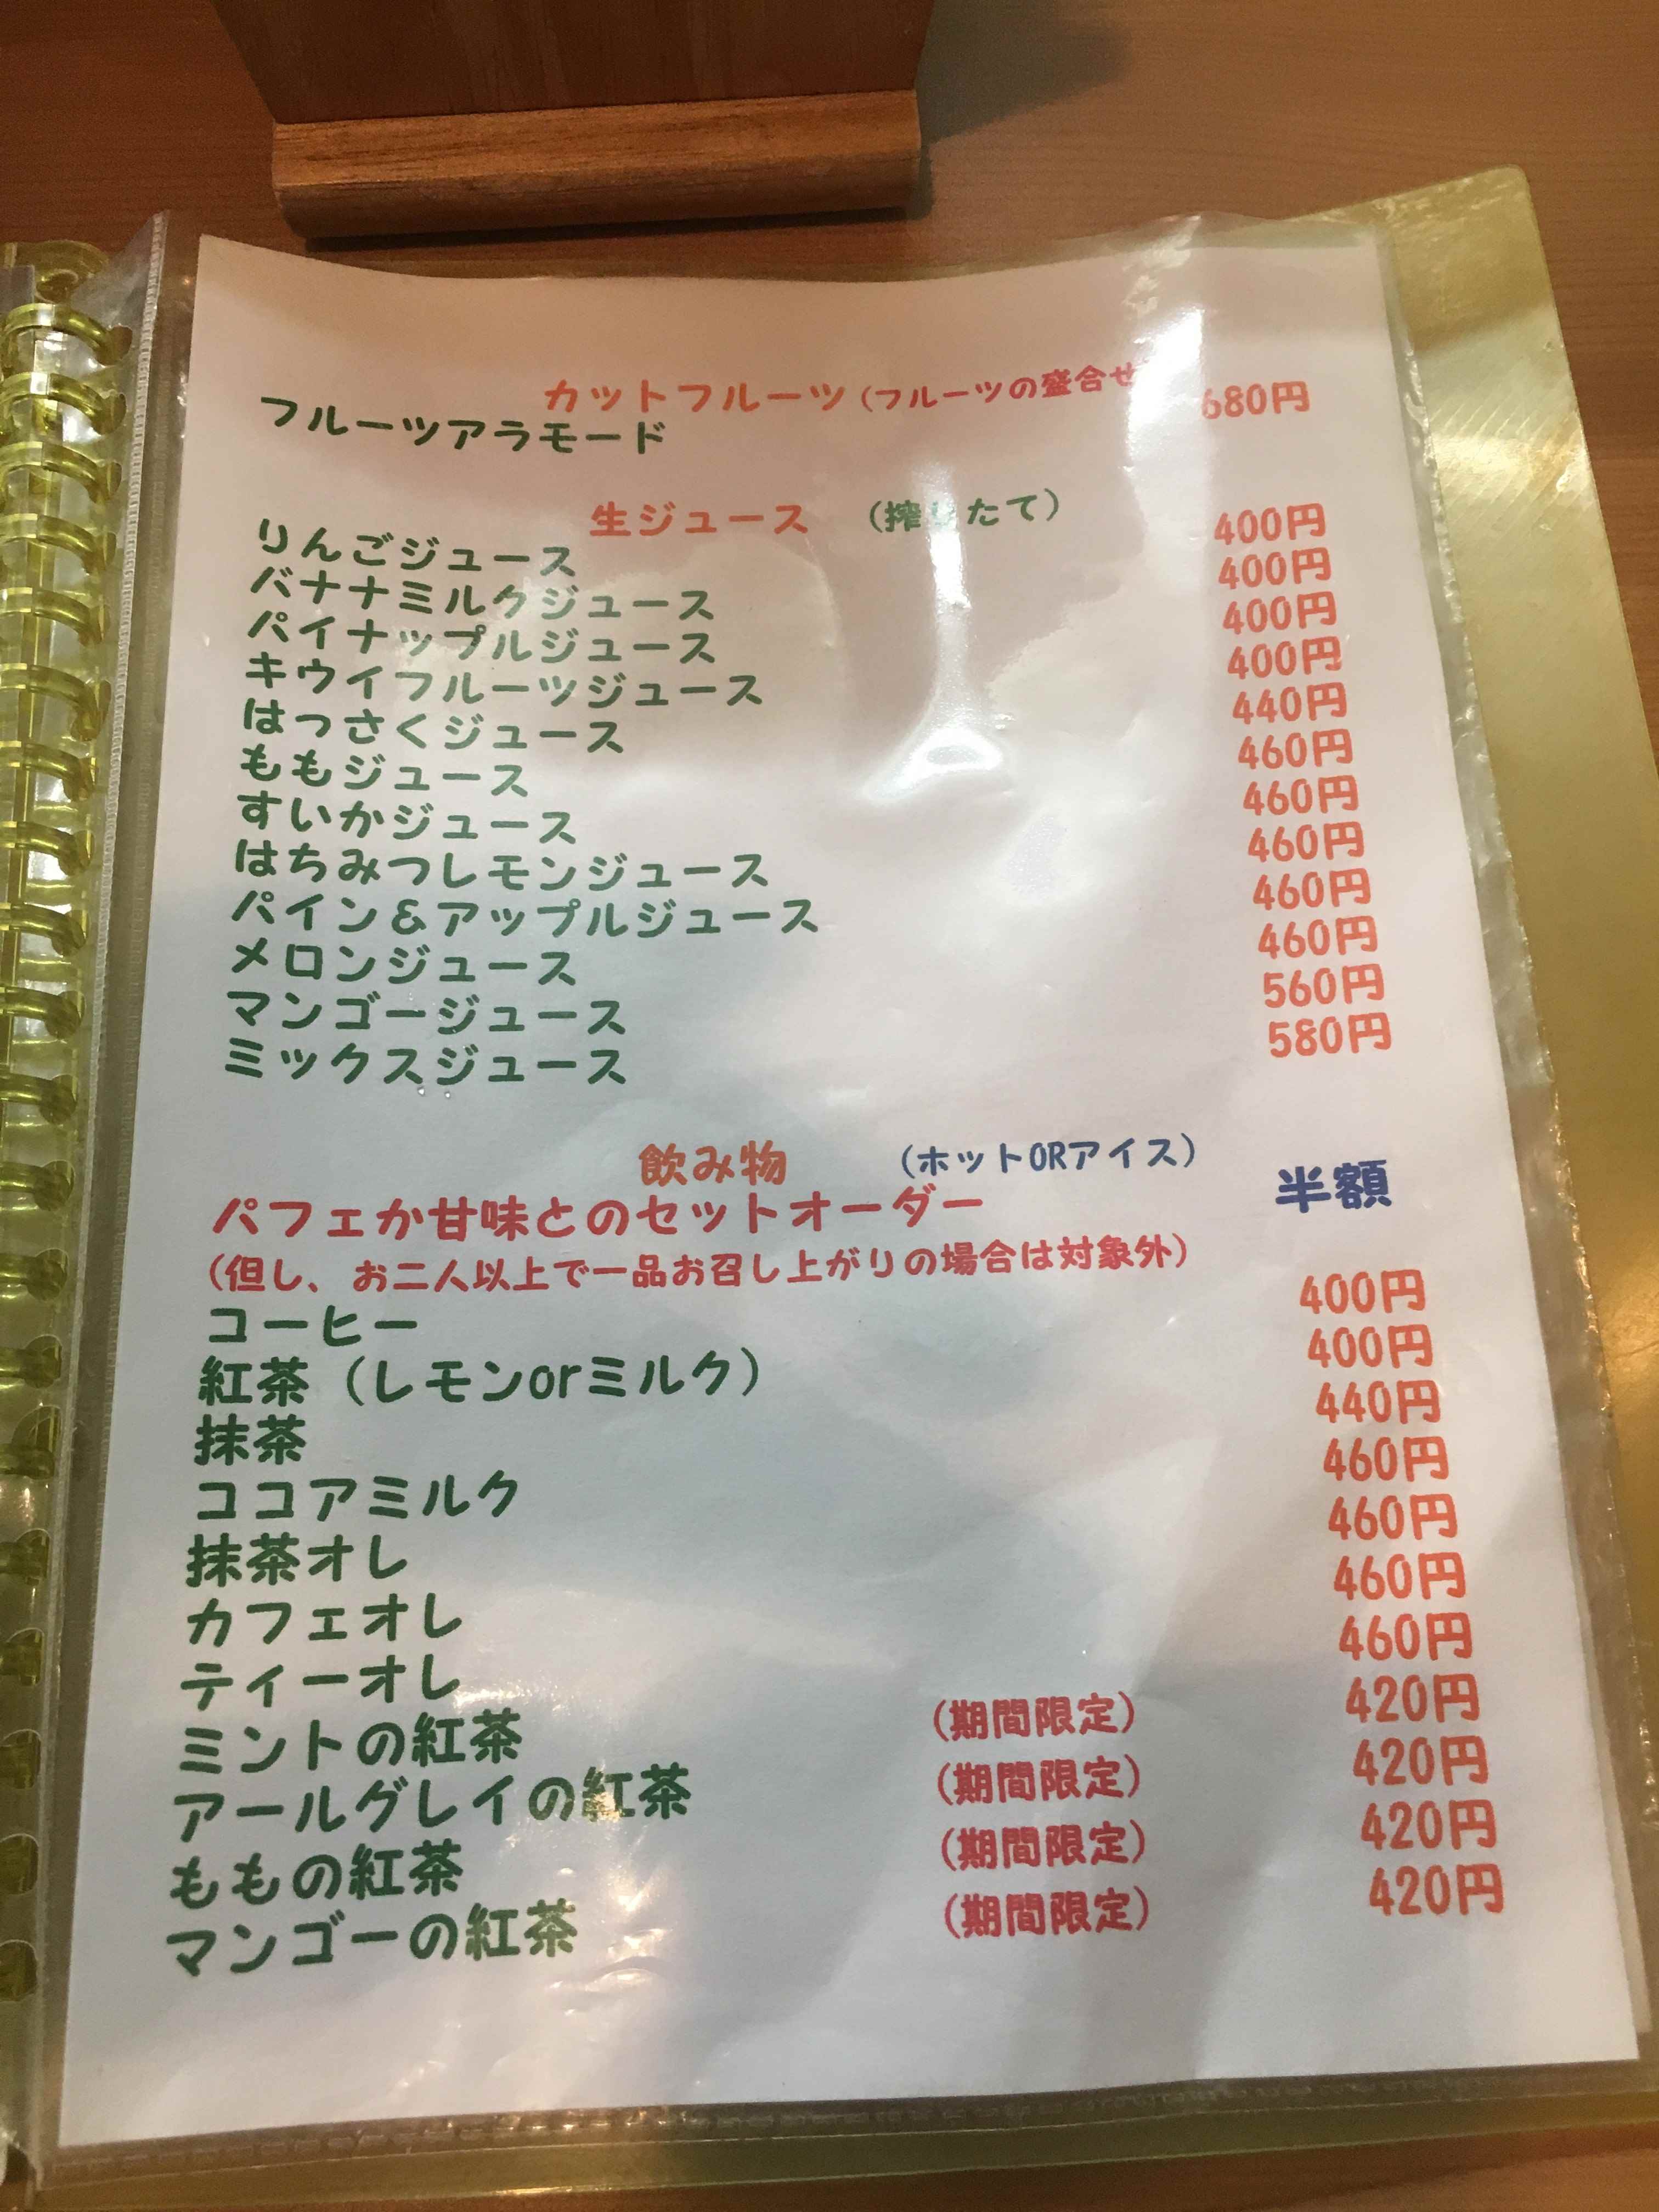 カットフルーツ(フルーツの盛合せ
フルーツアラモード 680円
生ジュース (搾りたて)
りんごジュース 400円
バナナミルクジュース 400円
パイナップルジュース 400円
キウイフルーツジュース 400円
はっさくジュース 440円
ももジュース 460円
すいかジュース 460円
はちみつレモンジュース 460円
パイン&アップルジュース 460円
メロンジュース 460円
マンゴージュース 560円
ミックスジュース 580円
飲み物 (ホットORアイス)
パフェか甘味とのセットオーダー 半額
(但し、お二人以上で一品お召し上がりの場合は対象外)
コーヒー 400円
紅茶(レモンorミルク) 400円
抹茶 440円
ココアミルク 460円
抹茶オレ 460円
カフェオレ 460円
ティーオレ 460円
ミントの紅茶 (期間限定) 420円
アールグレイの紅茶 (期間限定) 420円
ももの紅茶 (期間限定) 420円
マンゴーの紅茶 (期間限定) 420円